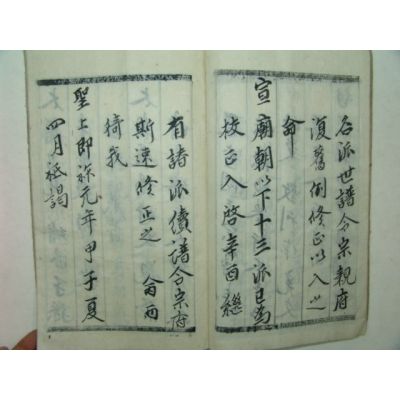 各派世譜令宗親府
復舊例修正以入之
命
宣廟朝以下十三派已爲
校正入啓辛酉繼
有諸派續譜令宗府
斯速修正之 侖而
猗我
聖上即祚元年甲子夏
四月祗謁